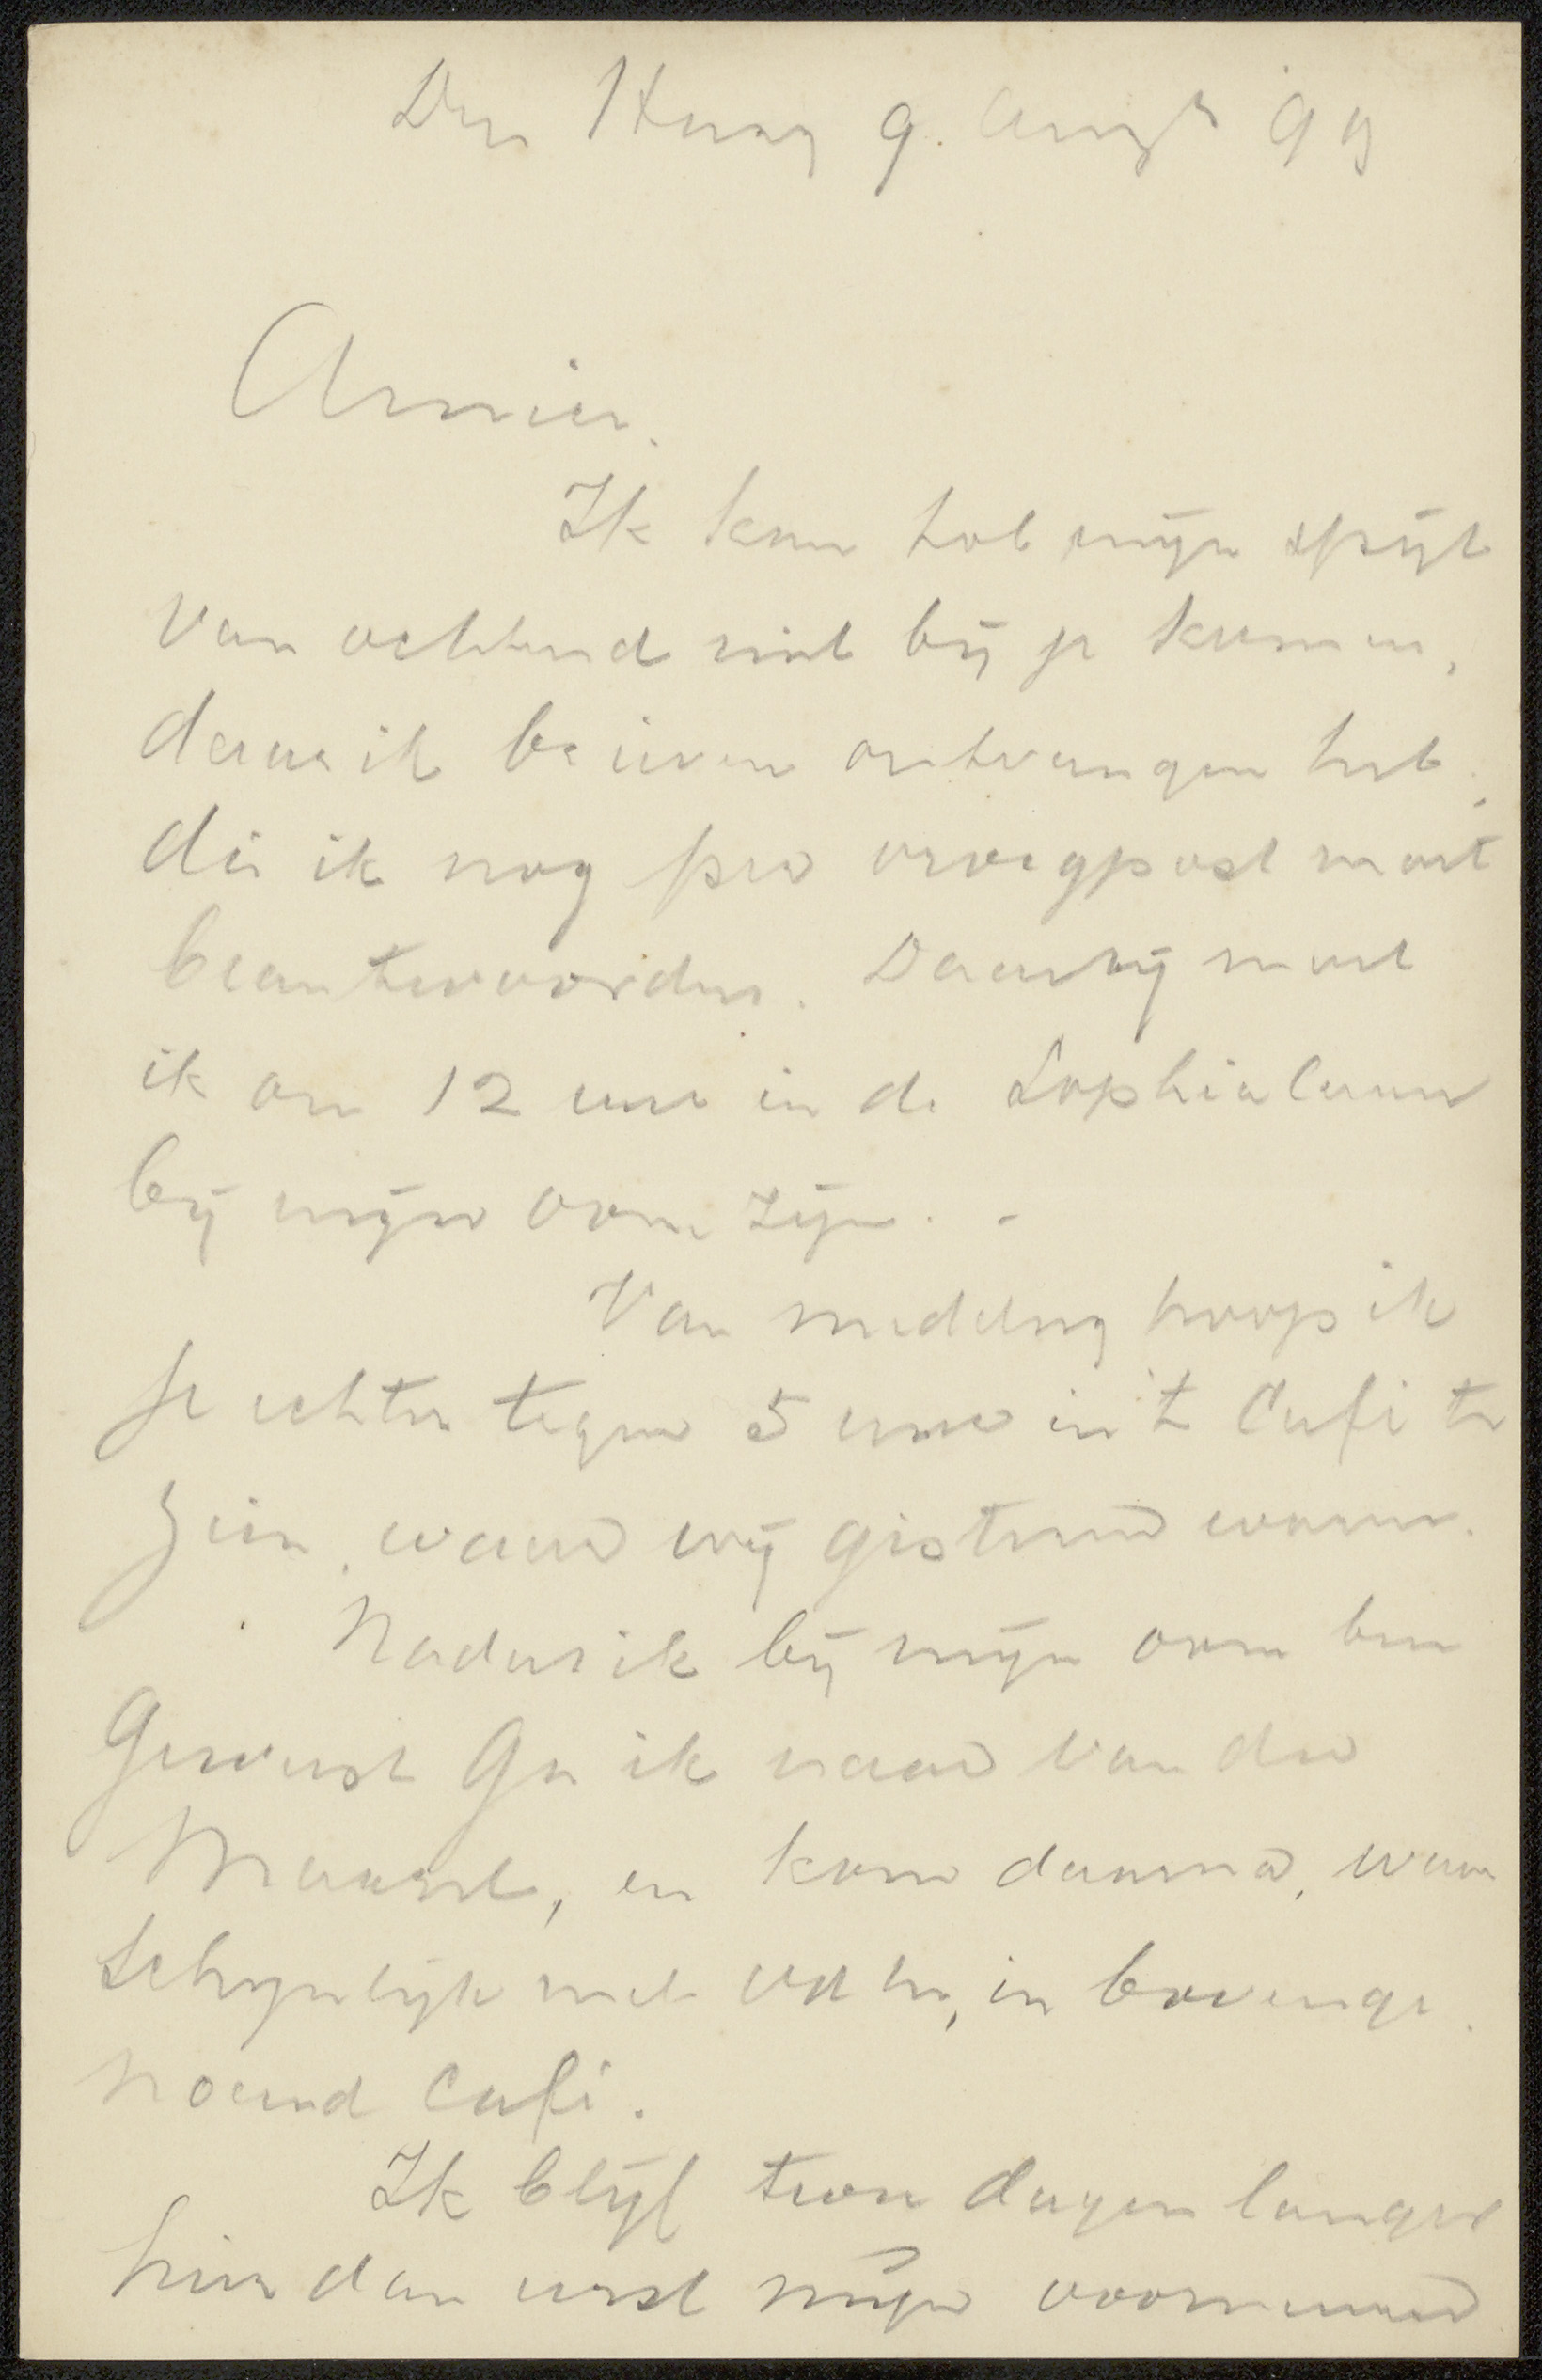 Den Haag 9. Aug. 99
Amice.
Ik kan tot mijn spijt
Van ochtend niet bij je komen,
daar ik brieven ontvangen heb,
die ik nog per vroegpost moet
beantwoorden. Daarbij moet
ik om 12 uur in de Sophialaan
bij mijn oom zijn. -
Van middag hoop ik
je echter tegen 5 uur in 't Café te
zien, waar wij gisteren waren.
Nadat ik bij mijn oom ben
geweest ga ik naar van der
Maarel, en kom daarna, waar
schijnlijk met, in bovenge
noemd Café.
Ik blijf twee dagen langer
hier dan eerst mijn voornemen